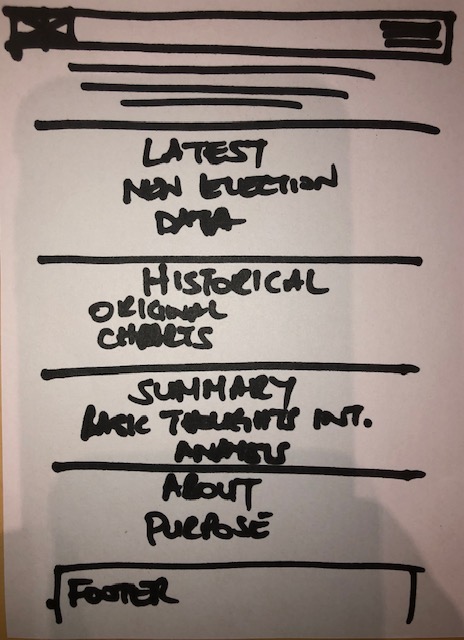 LATEST
NEW ELECTION
DATA
HISTORICAL
ORIGINAL
CHARTS
SUMMARY
BASIC THOUGHTS INT.
ANALYSIS
ABOUT
PURPOSE
FOOTER